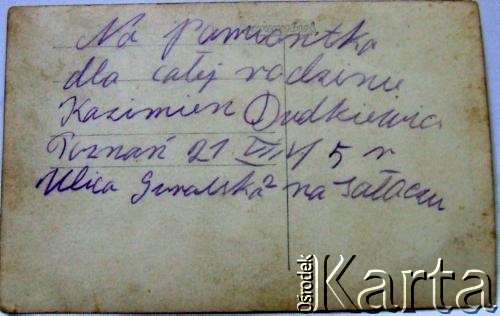 Na Pamiontka
dla całej rodzinie
Kazimierz Dudkiewicz
Poznań 21 VII 45 r
Ulica Guralska 2 na Sołaczu
Ośrodek
Karta